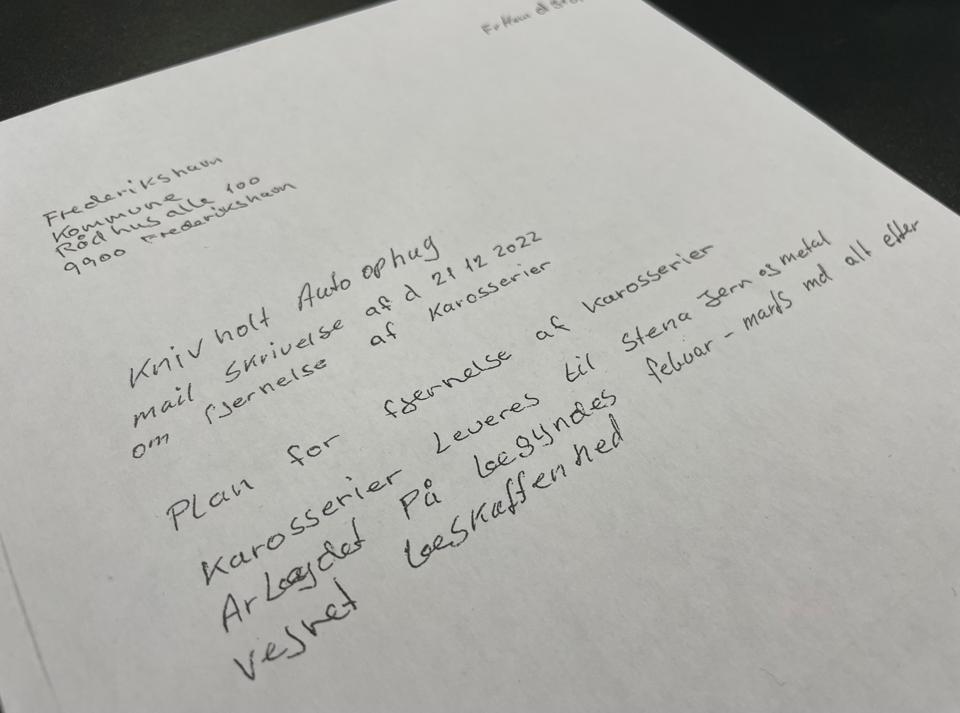 Frederikshavn
Kommune
Rådhus alle 100
9900 Frederikshavn
Knivholt Autoophug
mail skrivelse af d 21 12 2022
om fjernelse af karosserier
Plan for fjernelse af karosserier
karosserier Leveres til Stena Jern og metal
Arbejdet På begyndes febuar - marts md alt efter
vejret beskaffenhed